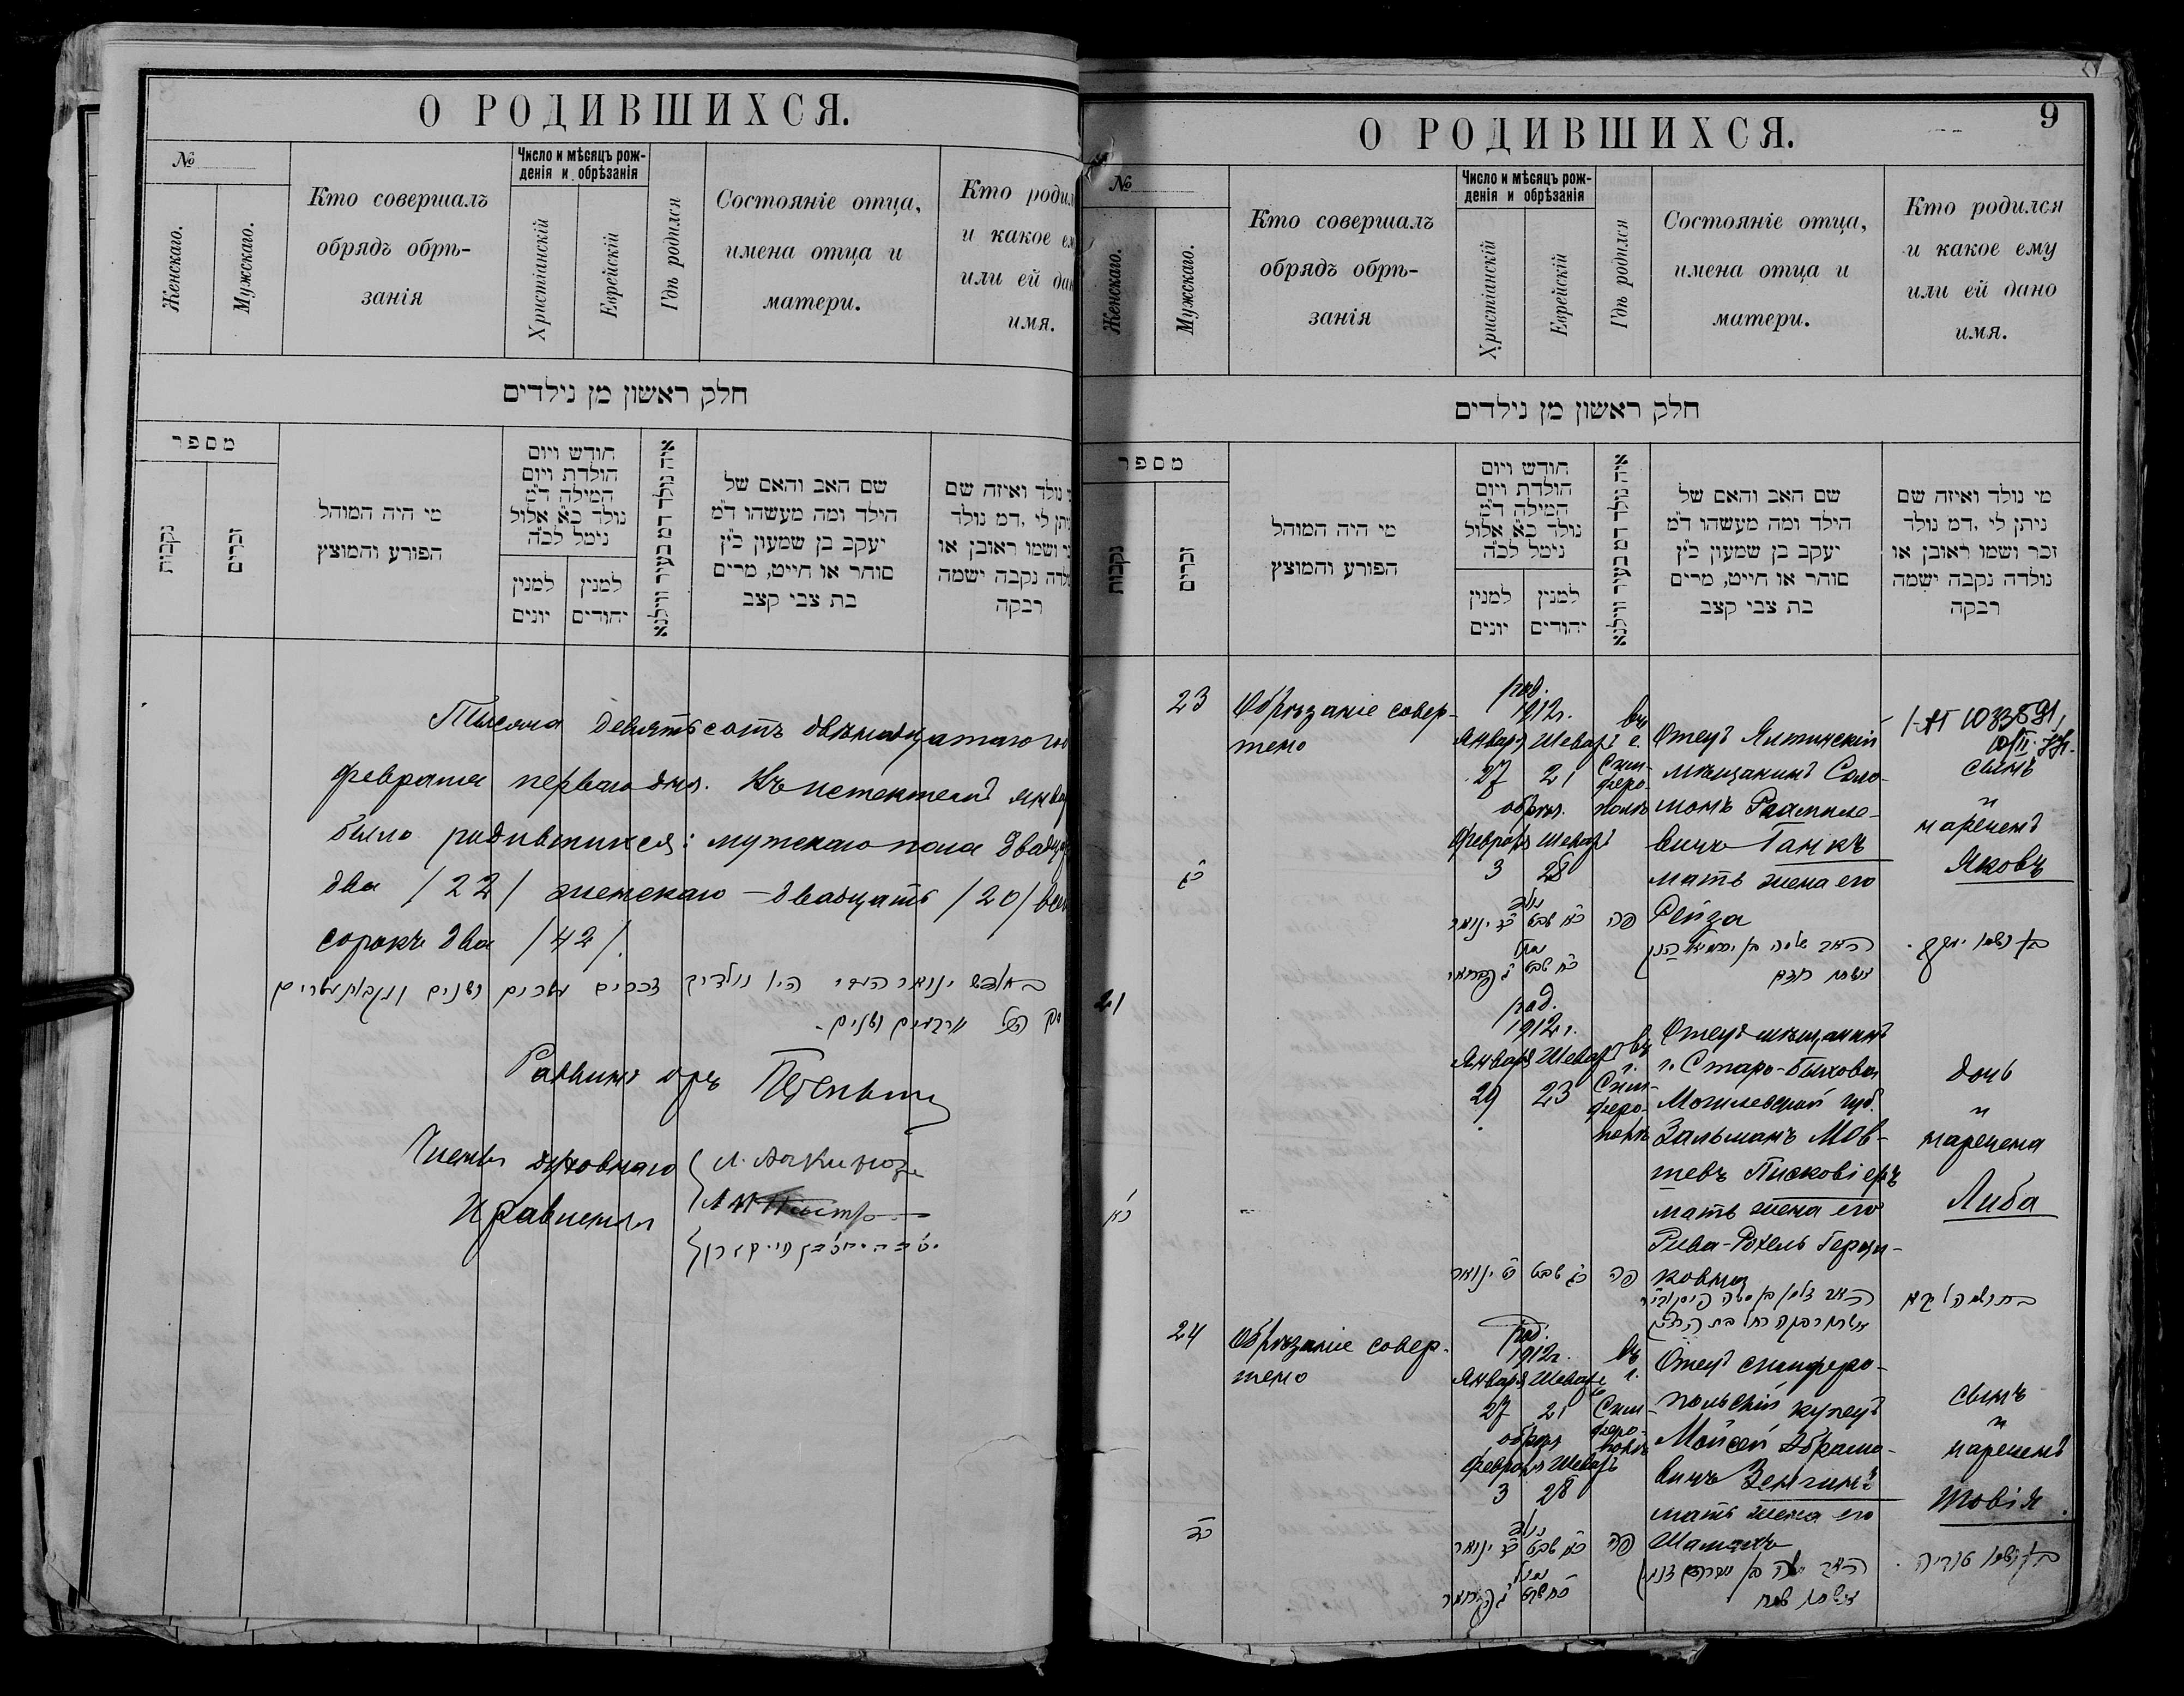 О РОДИВШИХСЯ.
№
Женскаго.
Мужскаго.
Кто совершалъ
обрядъ обрѣ-
занія
Число и мѣсяцъ рож-
денія и обрѣзанія
Христіанскій
Еврейскій
Гдѣ родился
Состояніе отца,
имена отца и
матери.
Кто родил
и какое ем
или ей дан
имя.
חלק ראשון מן נילדים
מספר
נקבות
זכרים
מי היה המוהל
הפורע והמוצץ
חודש ויום
הולדת ויום
המילה ד״מ
נולד כ״א אלול
נימל לכ״ה
למנין
יונים
למנין
יהודים
איה נולד דמ בעיר ווילנא
שם האב והאם של
הילד ומה מעשהו ד״מ
יעקב בן שמעון כ״ץ
סוחר או חייט, מרים
בת צבי קצב
נולד ואיזה שם
ניתן לי ,דמ נולד
ושמו ראובן או
נולדה נקבה ישמה
רבקה
Тысяча девятьсотъ двѣнадцатаго го
февраля перваго дня. Къ истекшему янва
было родившихся: мужскаго пола двадца
два /22/ женскаго — двадцать /20/ все
сорокъ два /42/.
ינואר היו נולדים זכרים עשרים ושנים ונקבות עשרים
ארבעים ושנים.
Раввинъ
Члены духовнаго
Правленія
О РОДИВШИХСЯ.
9
№
Женскаго.
Мужскаго.
Кто совершалъ
обрядъ обрѣ-
занія
Число и мѣсяцъ рож-
денія и обрѣзанія
Христіанскій
Еврейскій
Гдѣ родился
Состояніе отца,
имена отца и
матери.
Кто родился
и какое ему
или ей дано
имя.
חלק ראשון מן נילדים
מספר
נקבות
זכרים
מי היה המוהל
הפורע והמוצץ
חודש ויום
הולדת ויום
המילה ד״מ
נולד כ״א אלול
נימל לכ״ה
למנין
יונים
למנין
יהודים
איה נולד דמ בעיר ווילנא
שם האב והאם של
הילד ומה מעשהו ד״מ
יעקב בן שמעון כ״ץ
סוחר או חייט, מרים
בת צבי קצב
מי נולד ואיזה שם
ניתן לי ,דמ נולד
זכר ושמו ראובן או
נולדה נקבה ישמה
רבקה
23
כג
Обрѣзаніе совер-
шено
род.
1912г.
Января Шеватъ
27 21
обрѣз.
Февраля Шеватъ
3 28
въ
г.
Сим-
феро-
полѣ
Отецъ
мѣщанинъ Соло-
монъ
вичъ Ганкъ
мать жена его
Рейза
сынъ
и
нареченъ
Яковъ
נולד
כא שבט ינואר
פה
כח שבט
21
כא
род.
1912г.
Января Шеватъ
29 23
въ
г.
Сим-
феро-
полѣ
Отецъ мѣщанинъ
г. Старо-Быхова
Могилевской губ.
Зальманъ Мов-
шевъ Писковіеръ
мать жена его
Рива-Рохель Герш-
ковна
дочь
и
наречена
Либа
כג שבט ינואר
פה
24
כד
Обрѣзаніе совер-
шено
род.
1912г.
Января Шеватъ
27 21
обрѣз.
Февраля Шеватъ
3 28
въ
г.
Сим-
феро-
полѣ
Отецъ симферо-
польскій купецъ
Мойсей Абрамо-
вичъ Зенгинъ
мать жена его
сынъ
и
нареченъ
Товія.
נולד
כא שבט ינואר
פה
בן ושמו טוביה